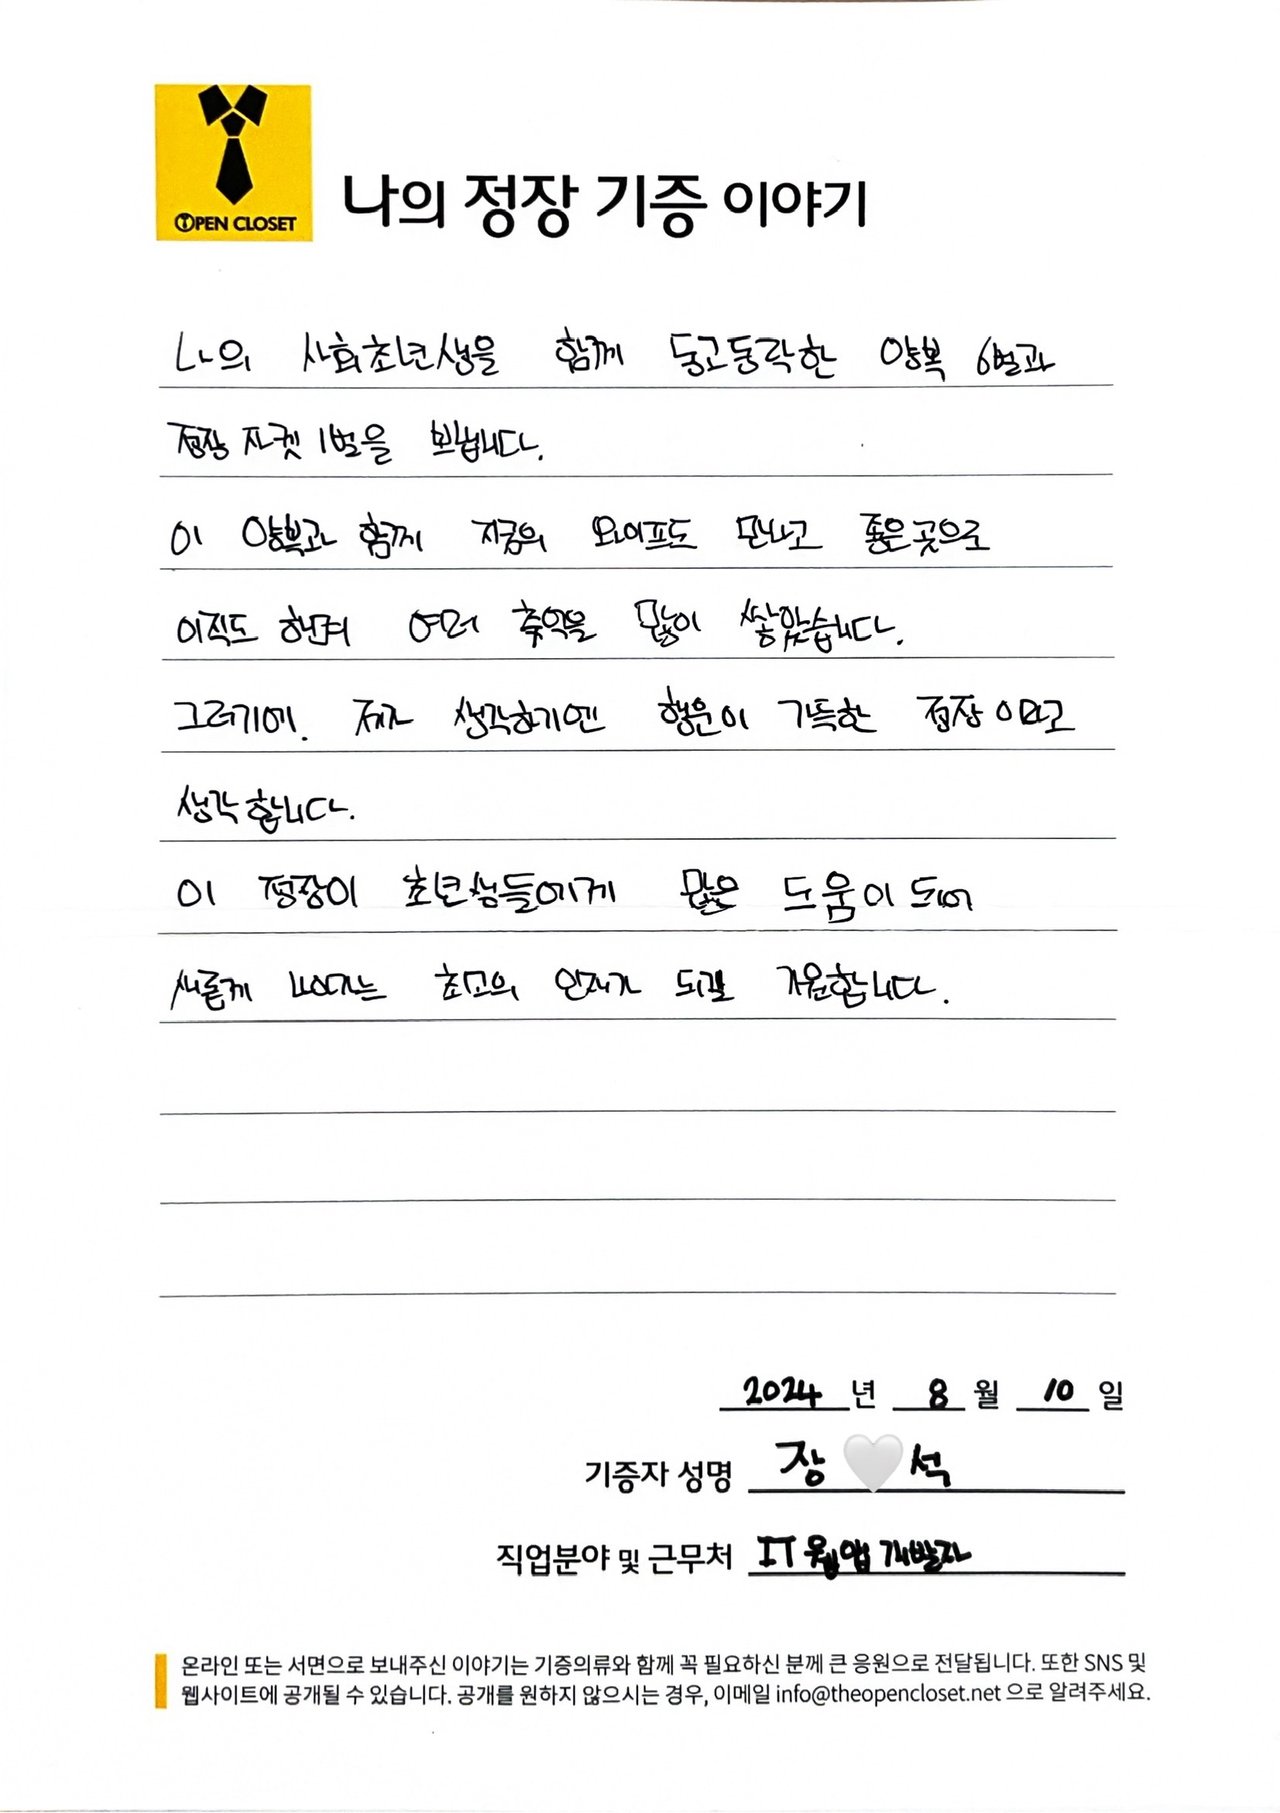 OPEN CLOSET
나의 정장 기증 이야기
나의 사회초년생을 함께 동고동락한 양복 6벌과
정장 자켓 1벌을 보냅니다.
이 양복과 함께 지금의 와이프도 만나고 좋은곳으로
이직도 하면서 여러 추억을 많이 쌓았습니다.
그러기에. 제가 생각하기엔 행운이 가득한 정장이라고
생각합니다.
이 정장이 초년생들에게 많은 도움이 되어
새롭게 나아가는 최고의 인재가 되길 기원합니다.
2024 년 8 월 10 일
기증자 성명 장 석
직업분야 및 근무처 IT 웹앱 개발자
온라인 또는 서면으로 보내주신 이야기는 기증의류와 함께 꼭 필요하신 분께 큰 응원으로 전달됩니다. 또한 SNS 및
웹사이트에 공개될 수 있습니다. 공개를 원하지 않으시는 경우, 이메일 info@theopencloset.net 으로 알려주세요.